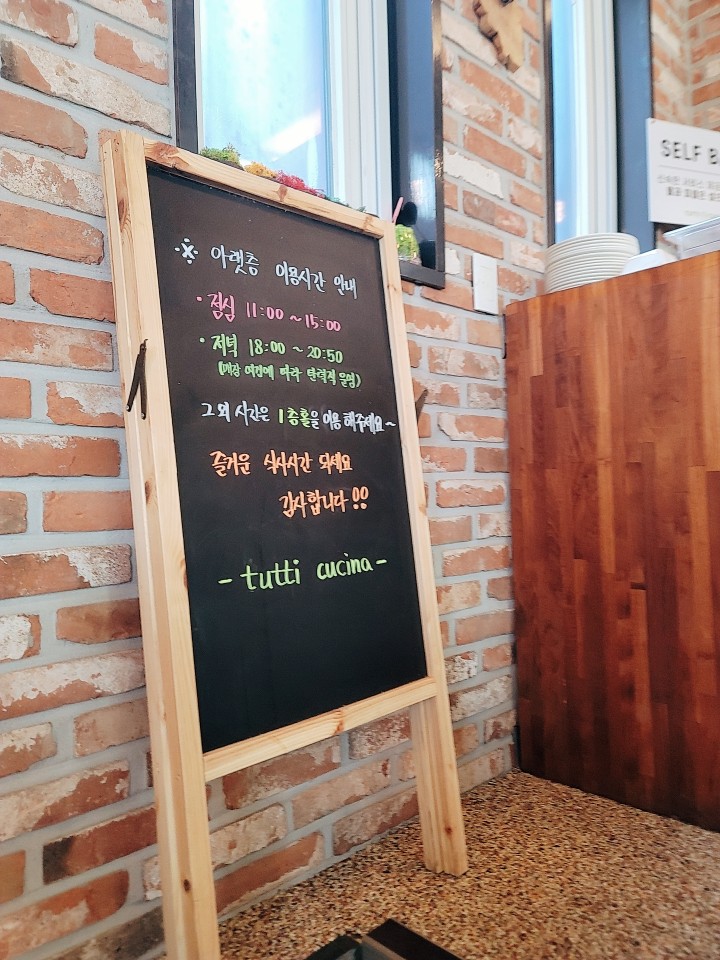 ※ 아랫층 이용시간 안내
· 점심 11:00 ~ 15:00
· 저녁 18:00 ~ 20:50
(매장 여건에 따라 탄력적 운영)
그 외 시간은 1층홀을 이용해주세요~
즐거운 식사시간 되세요
감사합니다!!
- tutti cucina -
SELF B